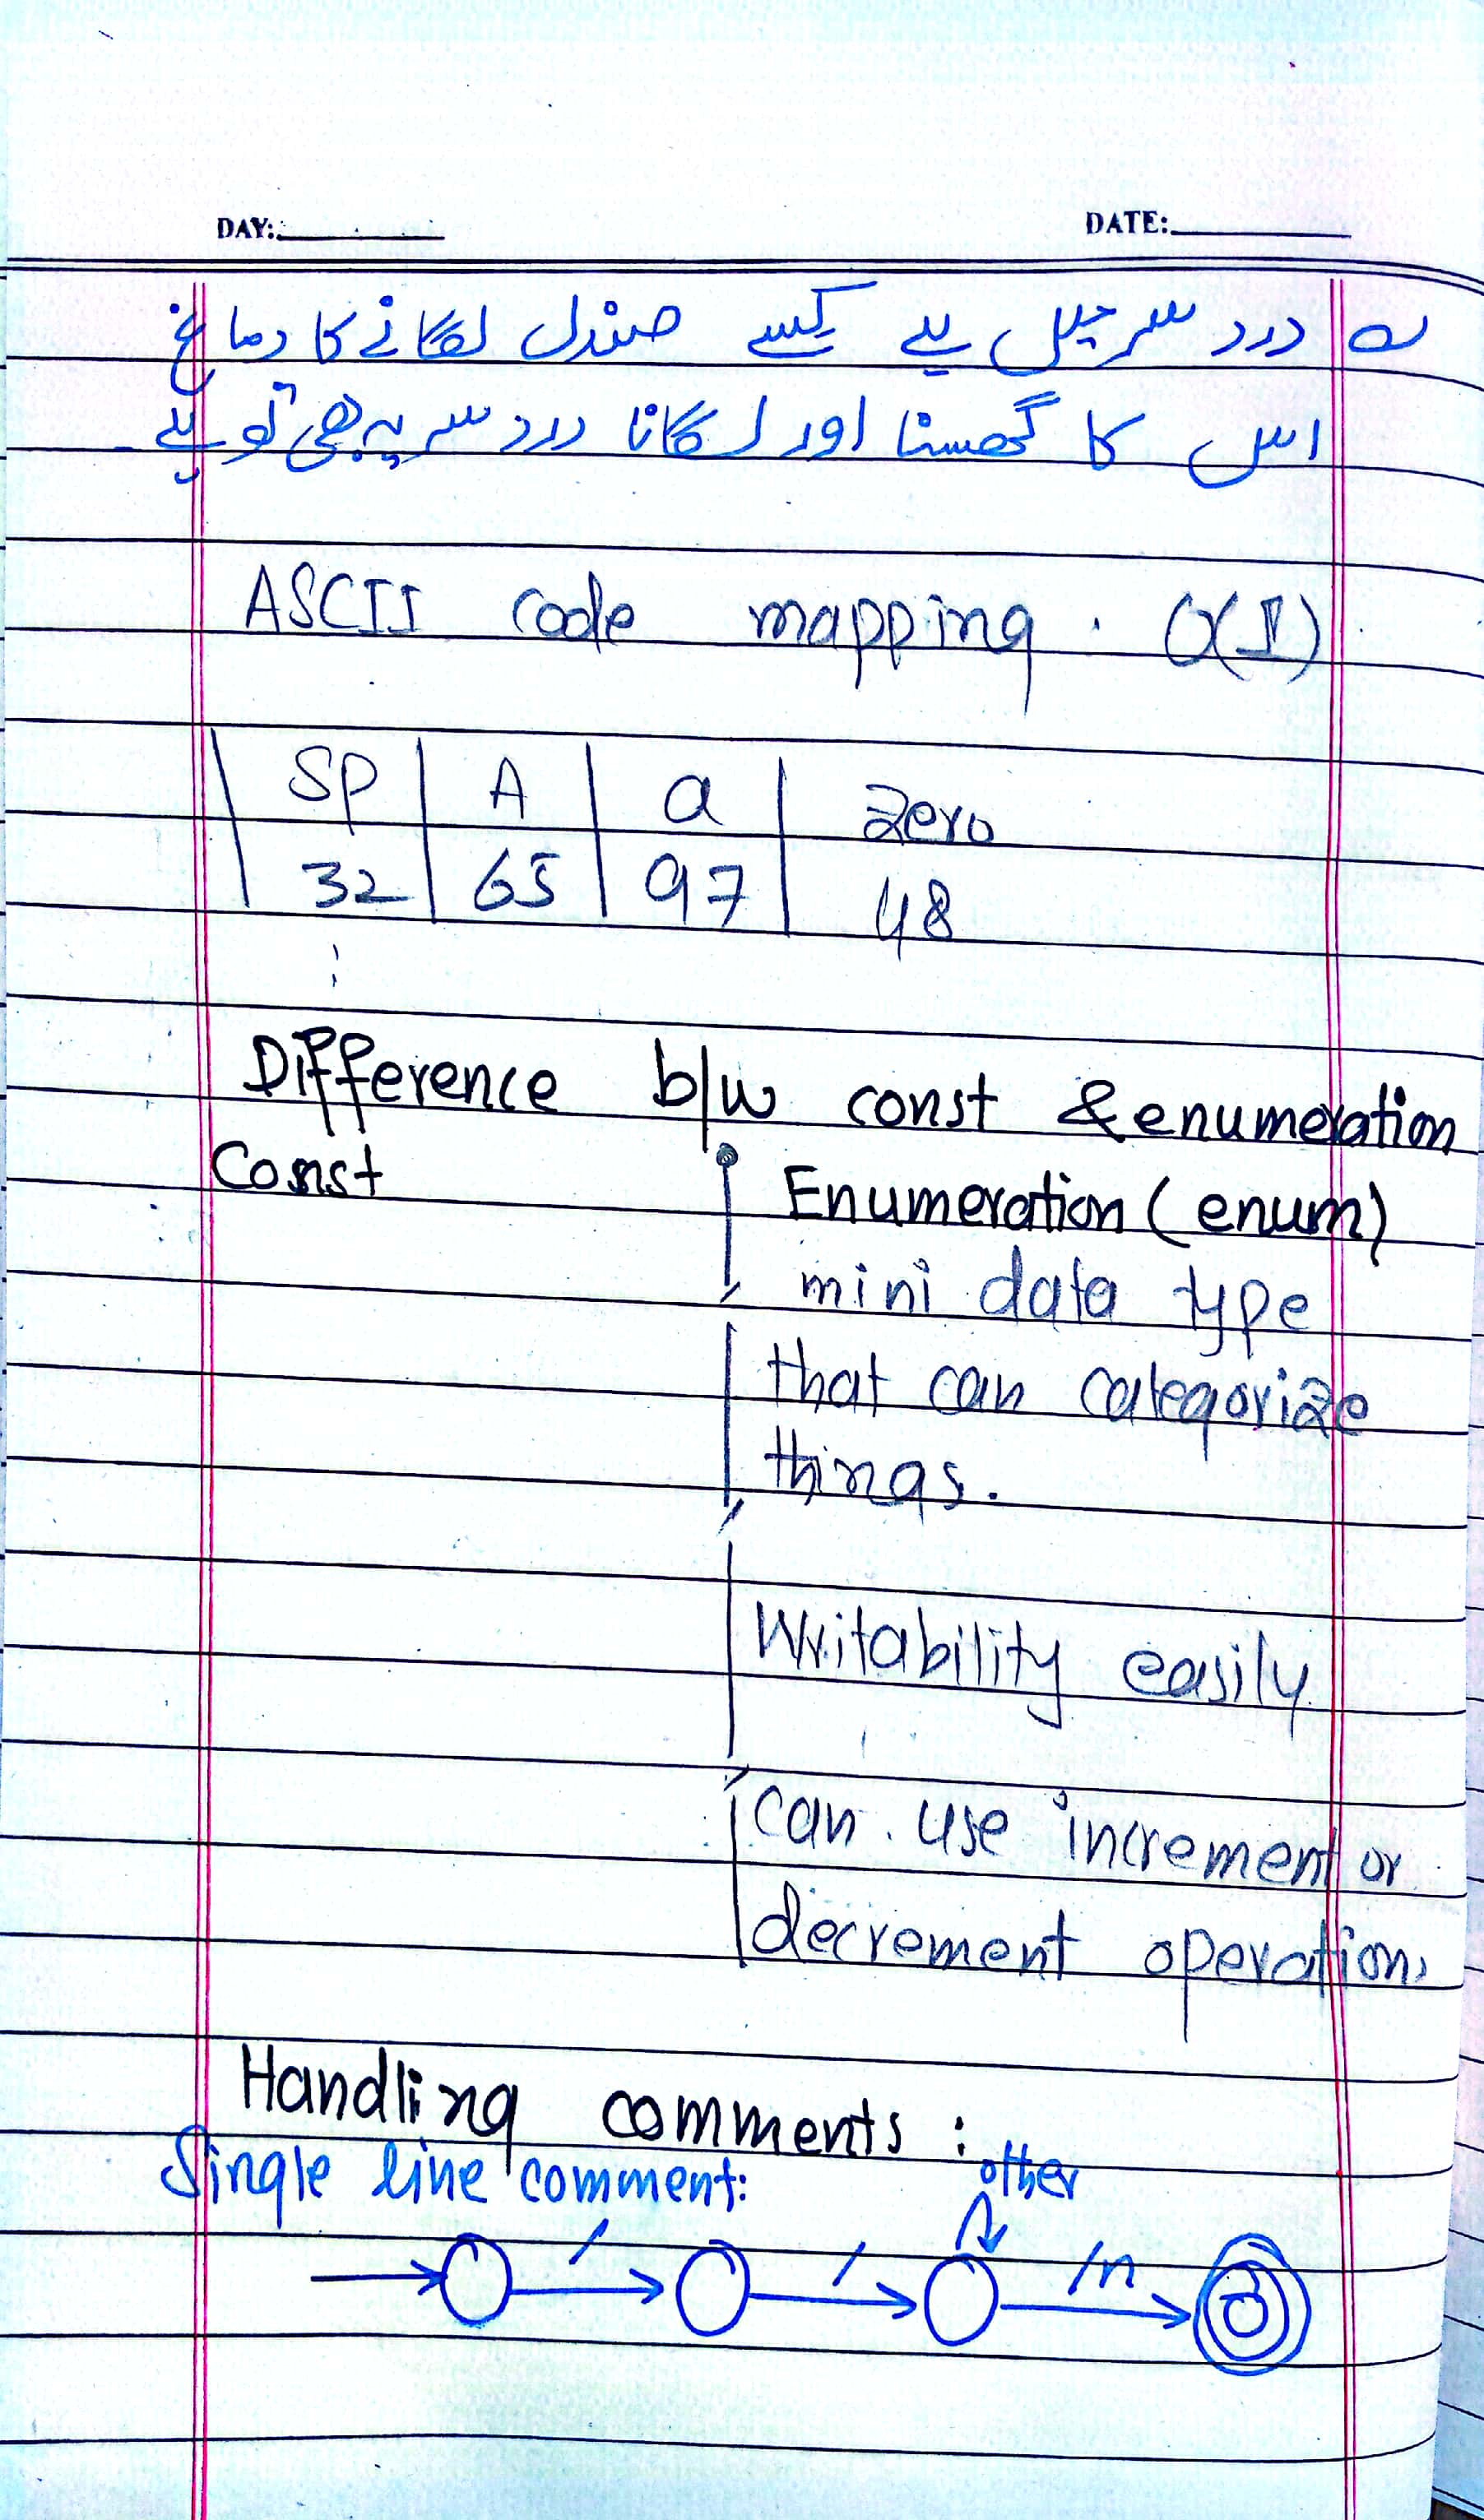 DAY: DATE:
درد سر میں ہے کسے صندل لگانے کا دماغ
اس کا گھسنا اور لگانا درد سر یہ بھی تو ہے
ASCII code mapping . O(1)
SP A a zero
32 65 97 48
Difference b/w const & enumeration
Const
Enumeration (enum)
mini data type
that can categorize
things.
Writability easily
can use increment or
decrement operation.
Handling comments :
Single line comment:
other
/ / /n